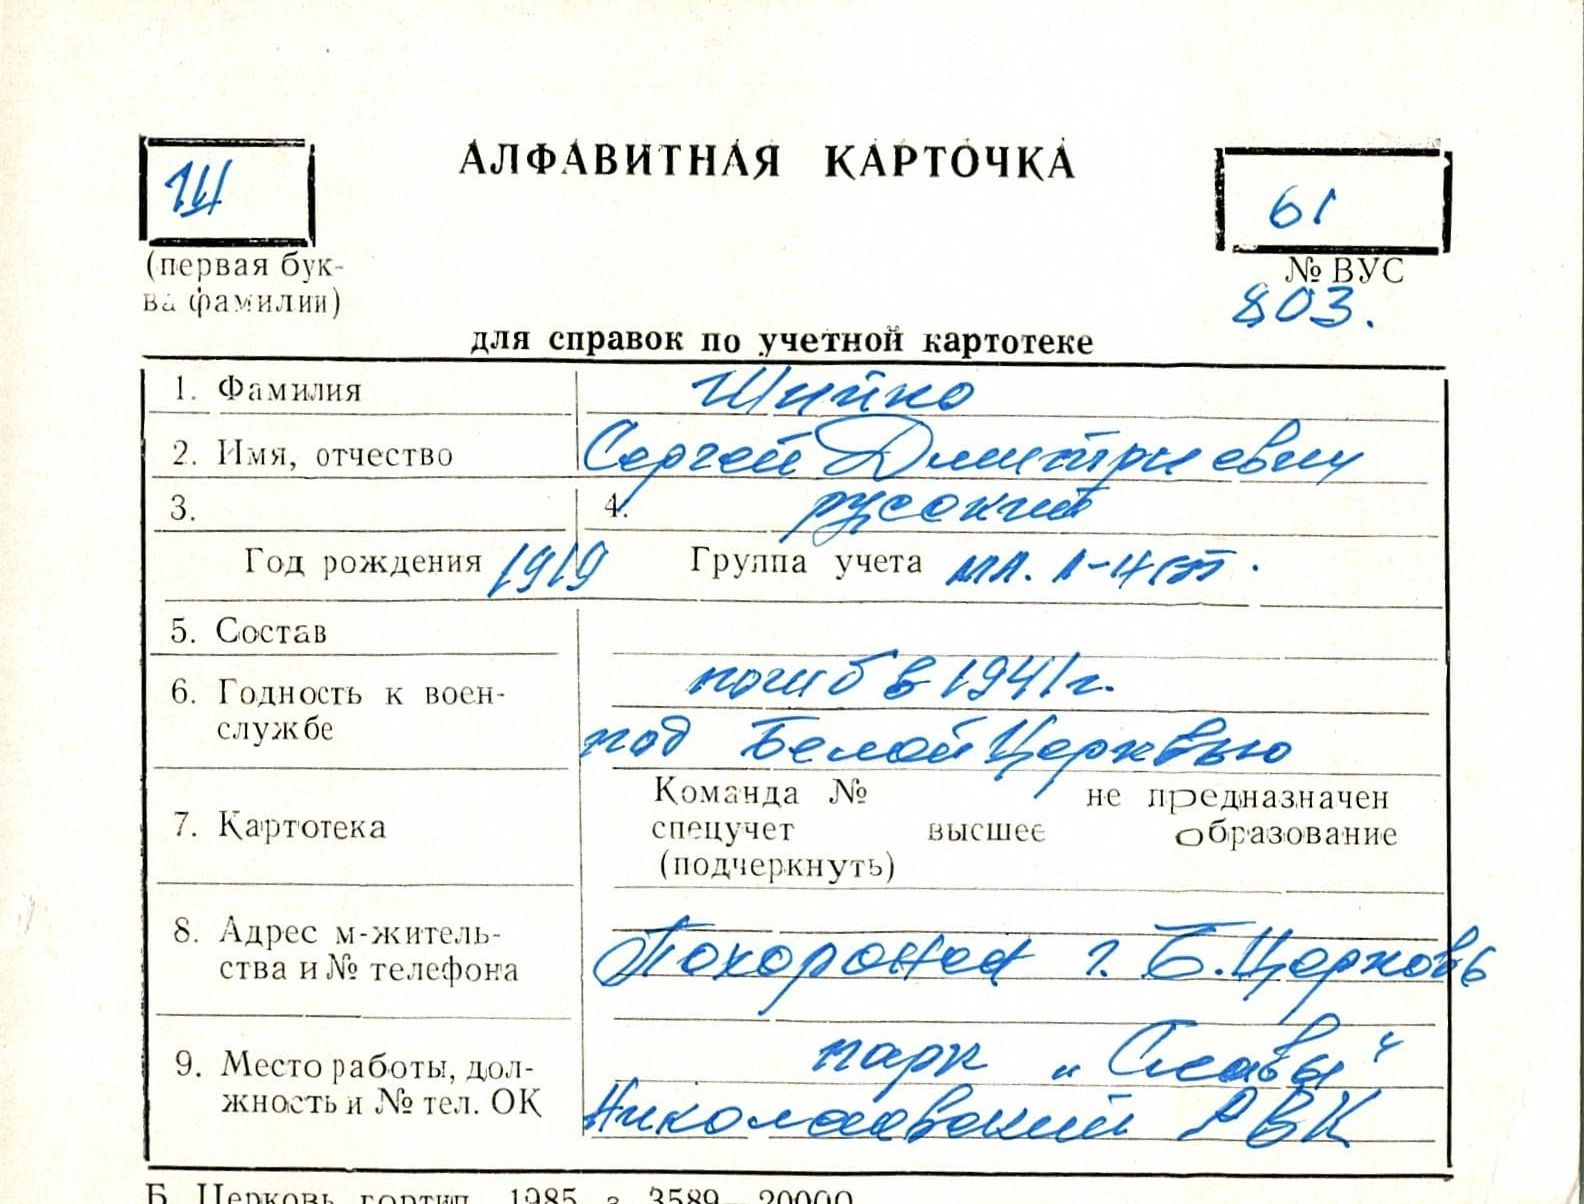 АЛФАВИТНАЯ КАРТОЧКА
Ш
61
(первая бук-
ва фамилии)
№ ВУС
803.
для справок по учетной картотеке
1. Фамилия Шийко
2. Имя, отчество Сергей Дмитриевич
3. 4. русский
Год рождения 1919 Группа учета мл. л-нт.
5. Состав
6. Годность к воен-
службе
погиб в 1941 г.
под Белой Церковью
7. Картотека
Команда № не предназначен
спецучет высшее образование
(подчеркнуть)
8. Адрес м-житель-
ства и № телефона
Похоронен г. Б. Церковь
парк „Славы“
9. Место работы, дол-
жность и № тел. ОК
Николаевский РВК
Б. Церковь, гортип. 1985 з. 3589—20000